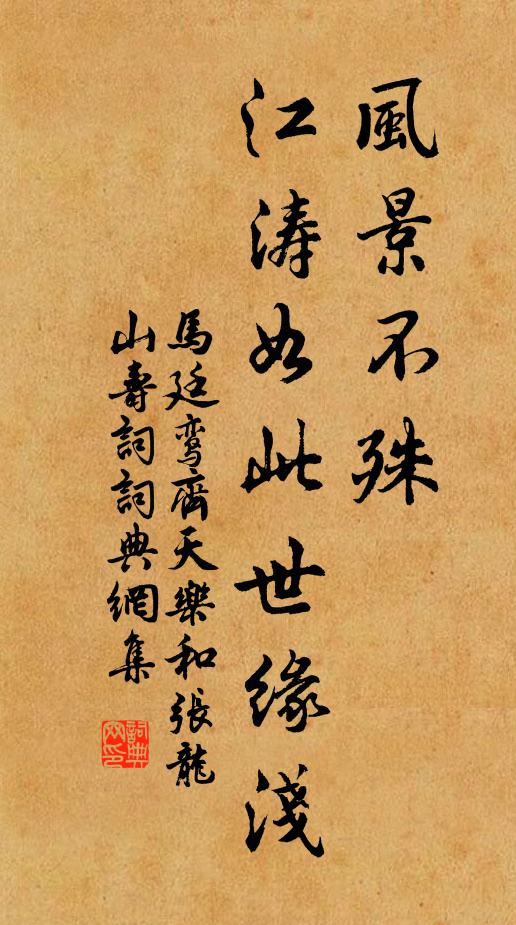 風景不殊
江涛如此世缘淺
馬廷鸾齊天樂和張龍
山壽詞詞典網集
詞典网印